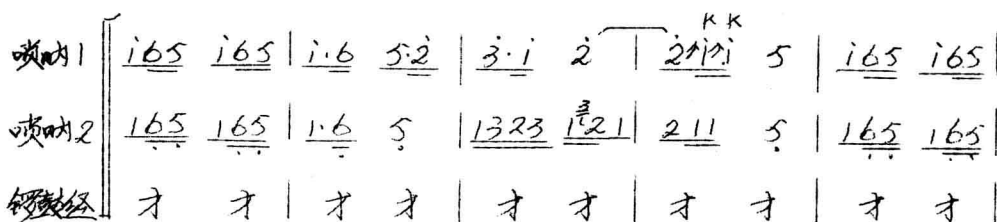 K K
唢呐1 i65 i65 | i·6 5·2̇ | 3̇·i 2̇ | 2̇ii 5 | i65 i65 |
唢呐2 165 165 | 1·6 5 | 1323 1321 | 211 5 | 165 165 |
锣鼓经 才 才 | 才 才 | 才 才 | 才 才 | 才 才 |